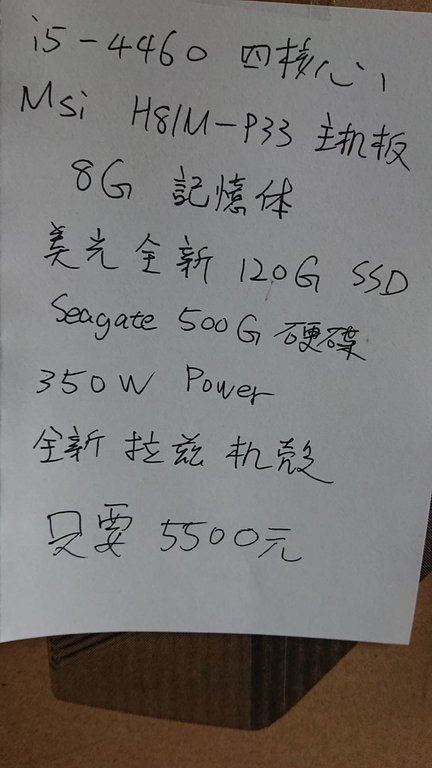 i5-4460 四核心,
Msi H81M-P33 主机板
8G 記憶体
美光全新 120G SSD
Seagate 500G 硬碟
350W Power
全新 拉兹 机殼
只要 5500元